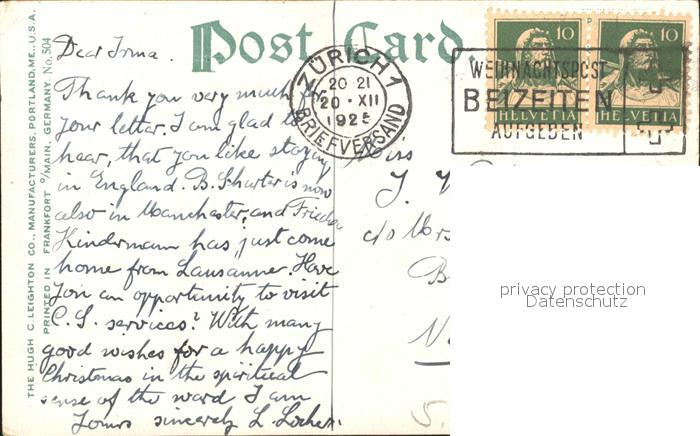 THE HUGH C. LEIGHTON CO., MANUFACTURERS, PORTLAND, ME., U.S.A.
PRINTED IN FRANKFORT o/MAIN, GERMANY. No. 504
Post Card.
Dear Irma.
Thank you very much for
your letter. I am glad to
hear, that you like staying
in England. B. is now
also in Manchester, and Frieda
Kindermann has just come
home from Lausanne. Have
you an opportunity to visit
C. S. services? With many
good wishes for a happy
Christmas in the spiritual
sense of the word I am
Yours sincerely L. Locher.
ZÜRICH 1
20 21
20 · XII
1925
BRIEFVERSAND
WEIHNACHTSPOST
BEIZEITEN
AUFGEBEN
10
HELVETIA
10
HELVETIA
Miss
J.
c/o Mrs
B
S.
privacy protection
Datenschutz